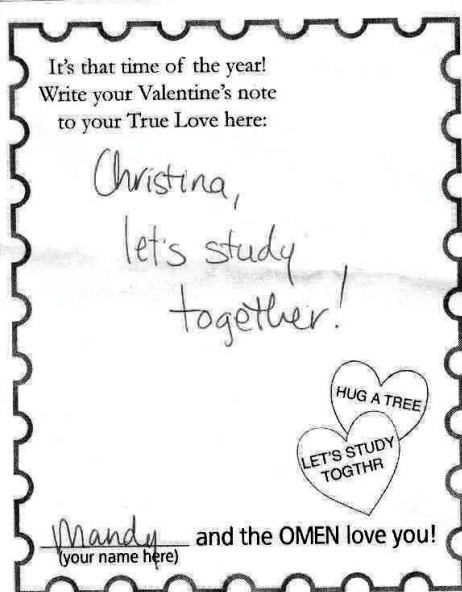 It's that time of the year!
Write your Valentine's note
to your True Love here:
Christina,
let's study
together!
HUG A TREE
LET'S STUDY
TOGTHR
Mandy and the OMEN love you!
(your name here)